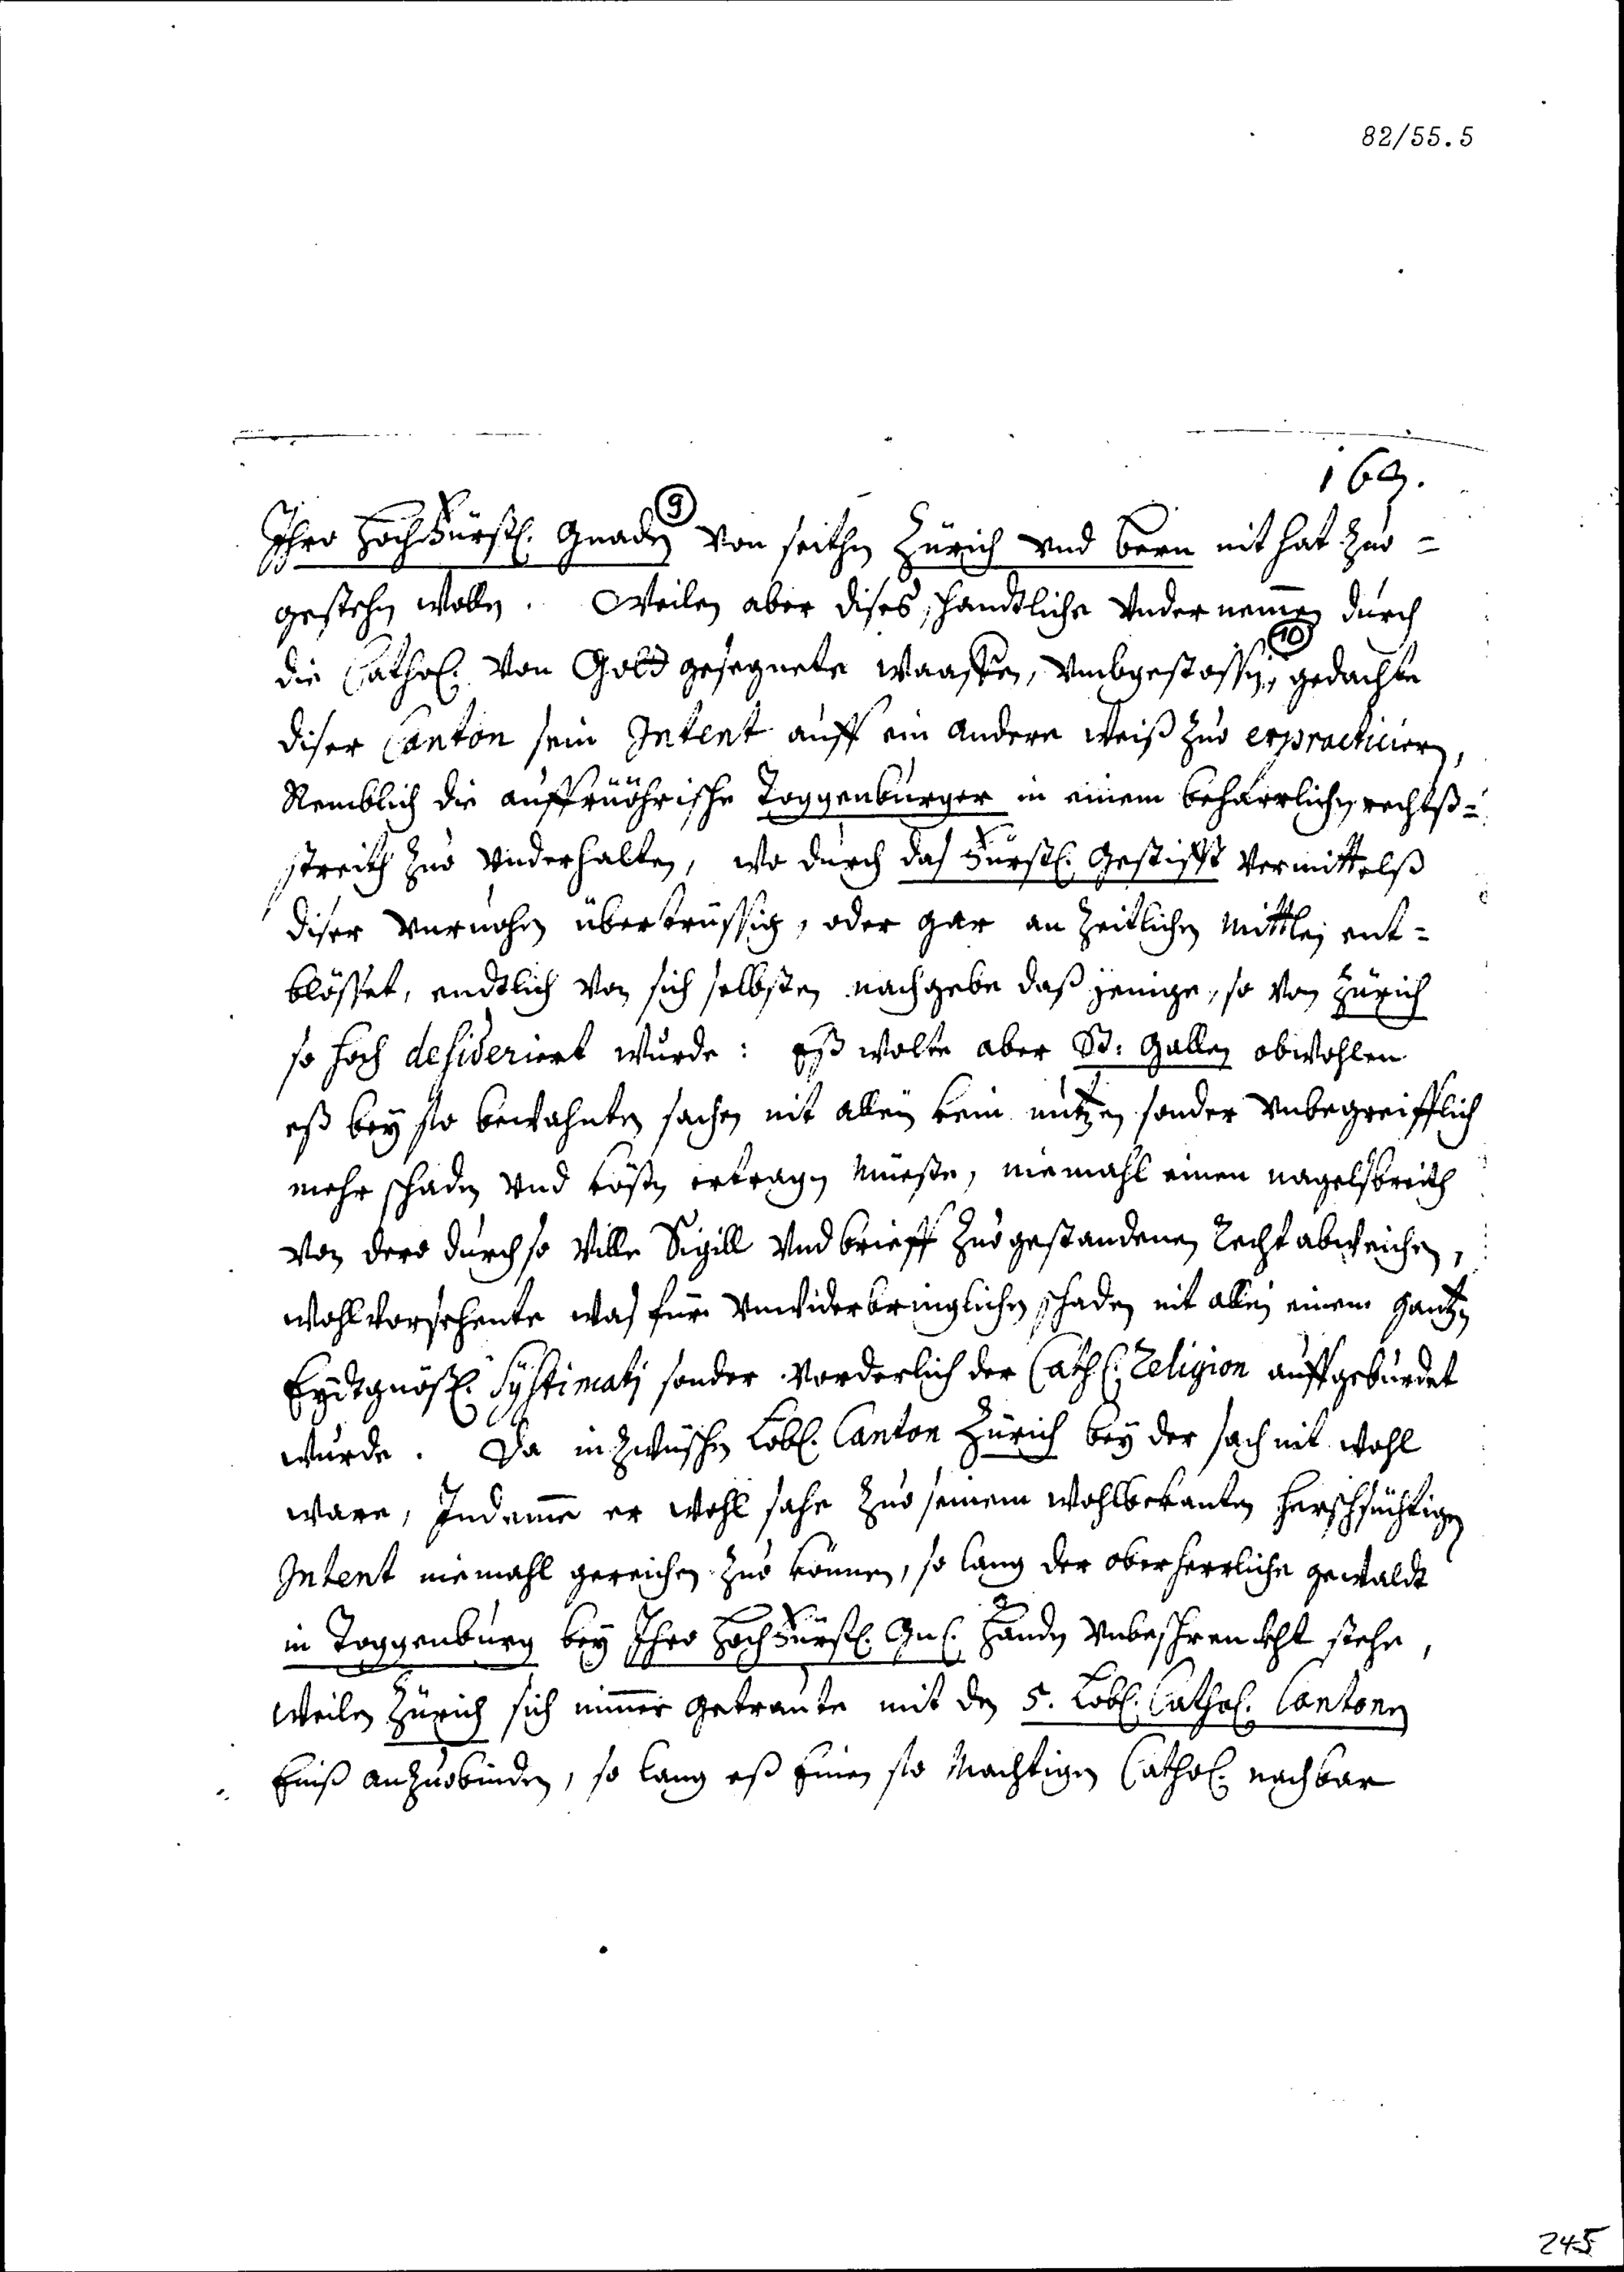 82/55.5
169.
Ihro Hochfürstl. Gnaden ⑨ von seithen Zürich vnd bern nit hat zuo=
gestehn wollen. Weilen aber dises schandtliche vndernemmen durch
die Cathol. von Gott gesegnete waaffen, vmbgestossen, ⑩ gedachte
diser Canton sein Intent auff ein andere weiß zuo erpracticiern,
Nemblich die auffrüöhrische Toggenburger in einem beharrlichen rechtß=
streith zuo vnderhalten, wo durch das Fürstl. Gestifft vermittelß
diser vnruohen übertrüssig, oder gar an zeitlichen mittlen ent=
blösset, endtlich von sich selbsten nachgebe daß jenige, so von Zürich
so hoch desideriert wurde: Eß wolte aber St: Gallen obwohlen
eß bey so bewahnten sachen nit allein kein nutzen sonder vnbegreifflich
mehr schaden vnd kösten ertragen müeste, niemahl einen nagelsbreith
von dero durch so ville Sigill vnd brieff zuogestandenen Recht abweichen,
wohl vorsehente was für vnwiderbringlichen schaden nit allein einem gantzen
Eydtgnös. Systimati sonder vorderlich der Cathl. Religion auffgebürdet
wurde. Da inzwüschen Lobl. Canton Zürich bey der sach nit wohl
ware, Indemme er wohl sahe zuo seinem wohlbekanten herschsüchtigen
Intent niemahl gereichen zuo können, so lang der oberherrliche gewaldt
in Toggenburg bey Ihro Hochfürstl. Gnl. Handen vnbeschrenckht stehe,
weilen Zürich sich nimmer getraute mit den 5. Lobl. Cathol. Cantonen
Eniß anzuobinden, so lang eß Einen so Mächtigen Cathol. nachbar
245